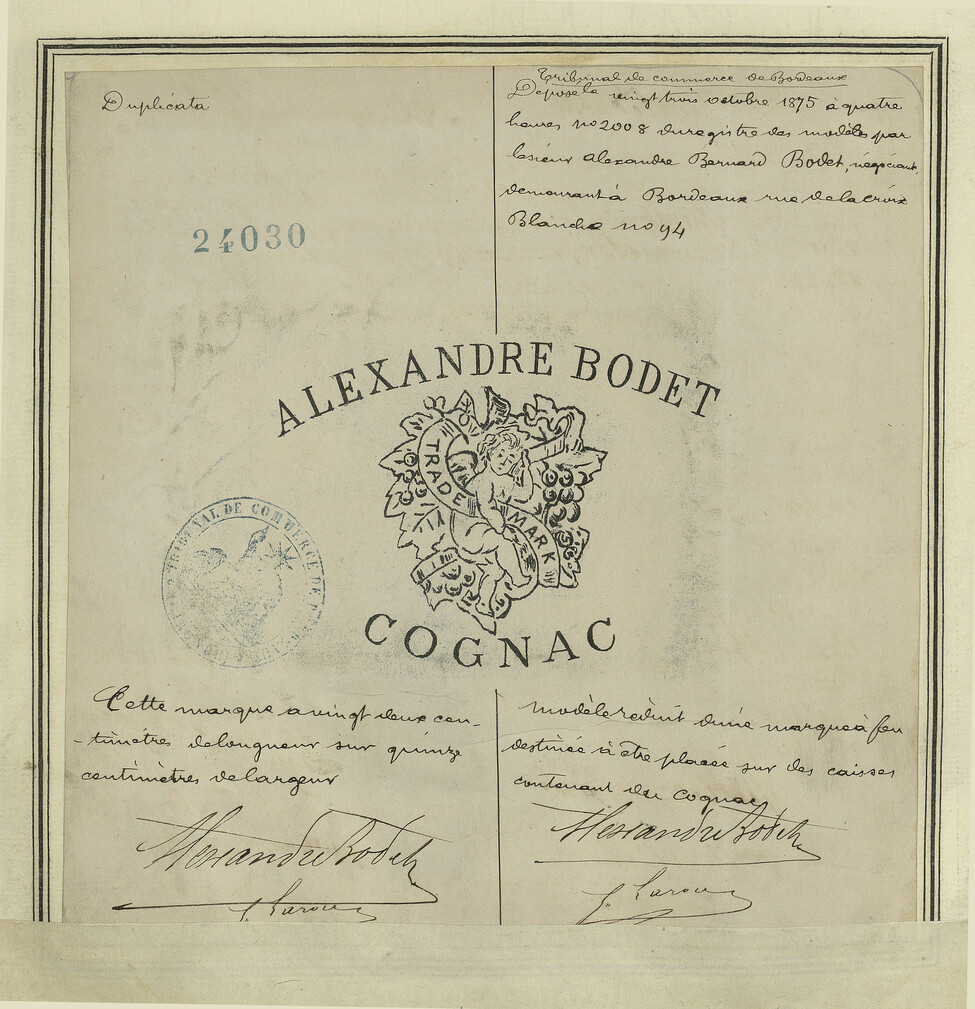 Duplicata
24030
Tribunal de commerce de Bordeaux
Déposé le vingt trois octobre 1875 à quatre
heures no 2008 du registre des modèles par
le sieur Alexandre Bernard Bodet, négociant,
demeurant à Bordeaux rue de la croix
Blanche no 94
ALEXANDRE BODET
TRADE
MARK
COGNAC
TRIBUNAL DE COMMERCE DE
Cette marque a vingt deux cen-
-timètres de longueur sur quinze
centimètres de largeur
Alexandre Bodet
modèle réduit d'une marque à feu
destinée à être placée sur des caisses
contenant du cognac
Alexandre Bodet